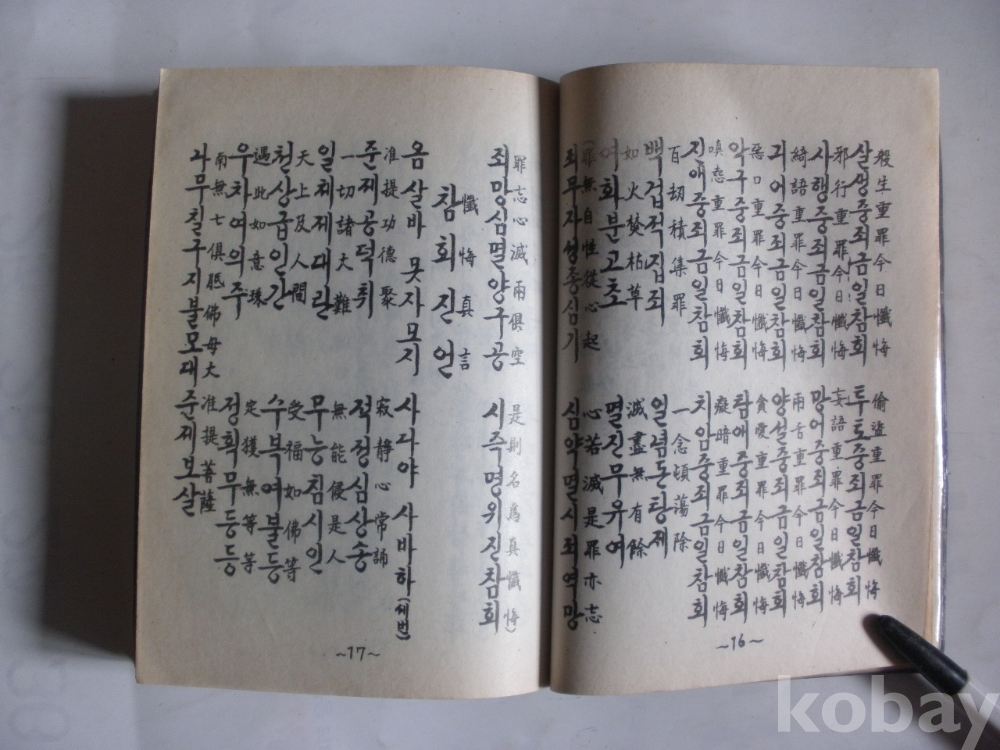 殺生重罪今日懺悔 偷盜重罪今日懺悔
살생중죄금일참회 투도중죄금일참회
邪行重罪今日懺悔 妄語重罪今日懺悔
사행중죄금일참회 망어중죄금일참회
綺語重罪今日懺悔 兩舌重罪今日懺悔
긔어중죄금일참회 양설중죄금일참회
惡口重罪今日懺悔 貪愛重罪今日懺悔
악구중죄금일참회 탐애중죄금일참회
嗔恚重罪今日懺悔 癡暗重罪今日懺悔
진애중죄금일참회 치암중죄금일참회
百劫積集罪 一念頓蕩除
백겁적집죄 일념돈탕제
如火焚枯草 滅盡無有餘
여화분고초 멸진무유여
(罪無自性從心起 心若滅是罪亦忘
죄무자성종심기 심약멸시죄역망
~16~
罪忘心滅兩俱空 是則名爲真懺悔)
죄망심멸양구공 시즉명위진참회
懺悔真言
참회진언
옴 살바 못자모지 사다야 사바하(세번)
准提功德聚 寂靜心常誦
준제공덕취 적정심상송
一切諸大難 無能侵是人
일체제대란 무능침시인
天上及人間 受福如佛等
천상급인간 수복여불등
遇此如意珠 定獲無等等
우차여의주 정획무등등
南無七俱胝佛母大 准提菩薩
나무칠구지불모대 준제보살
~17~
kobay